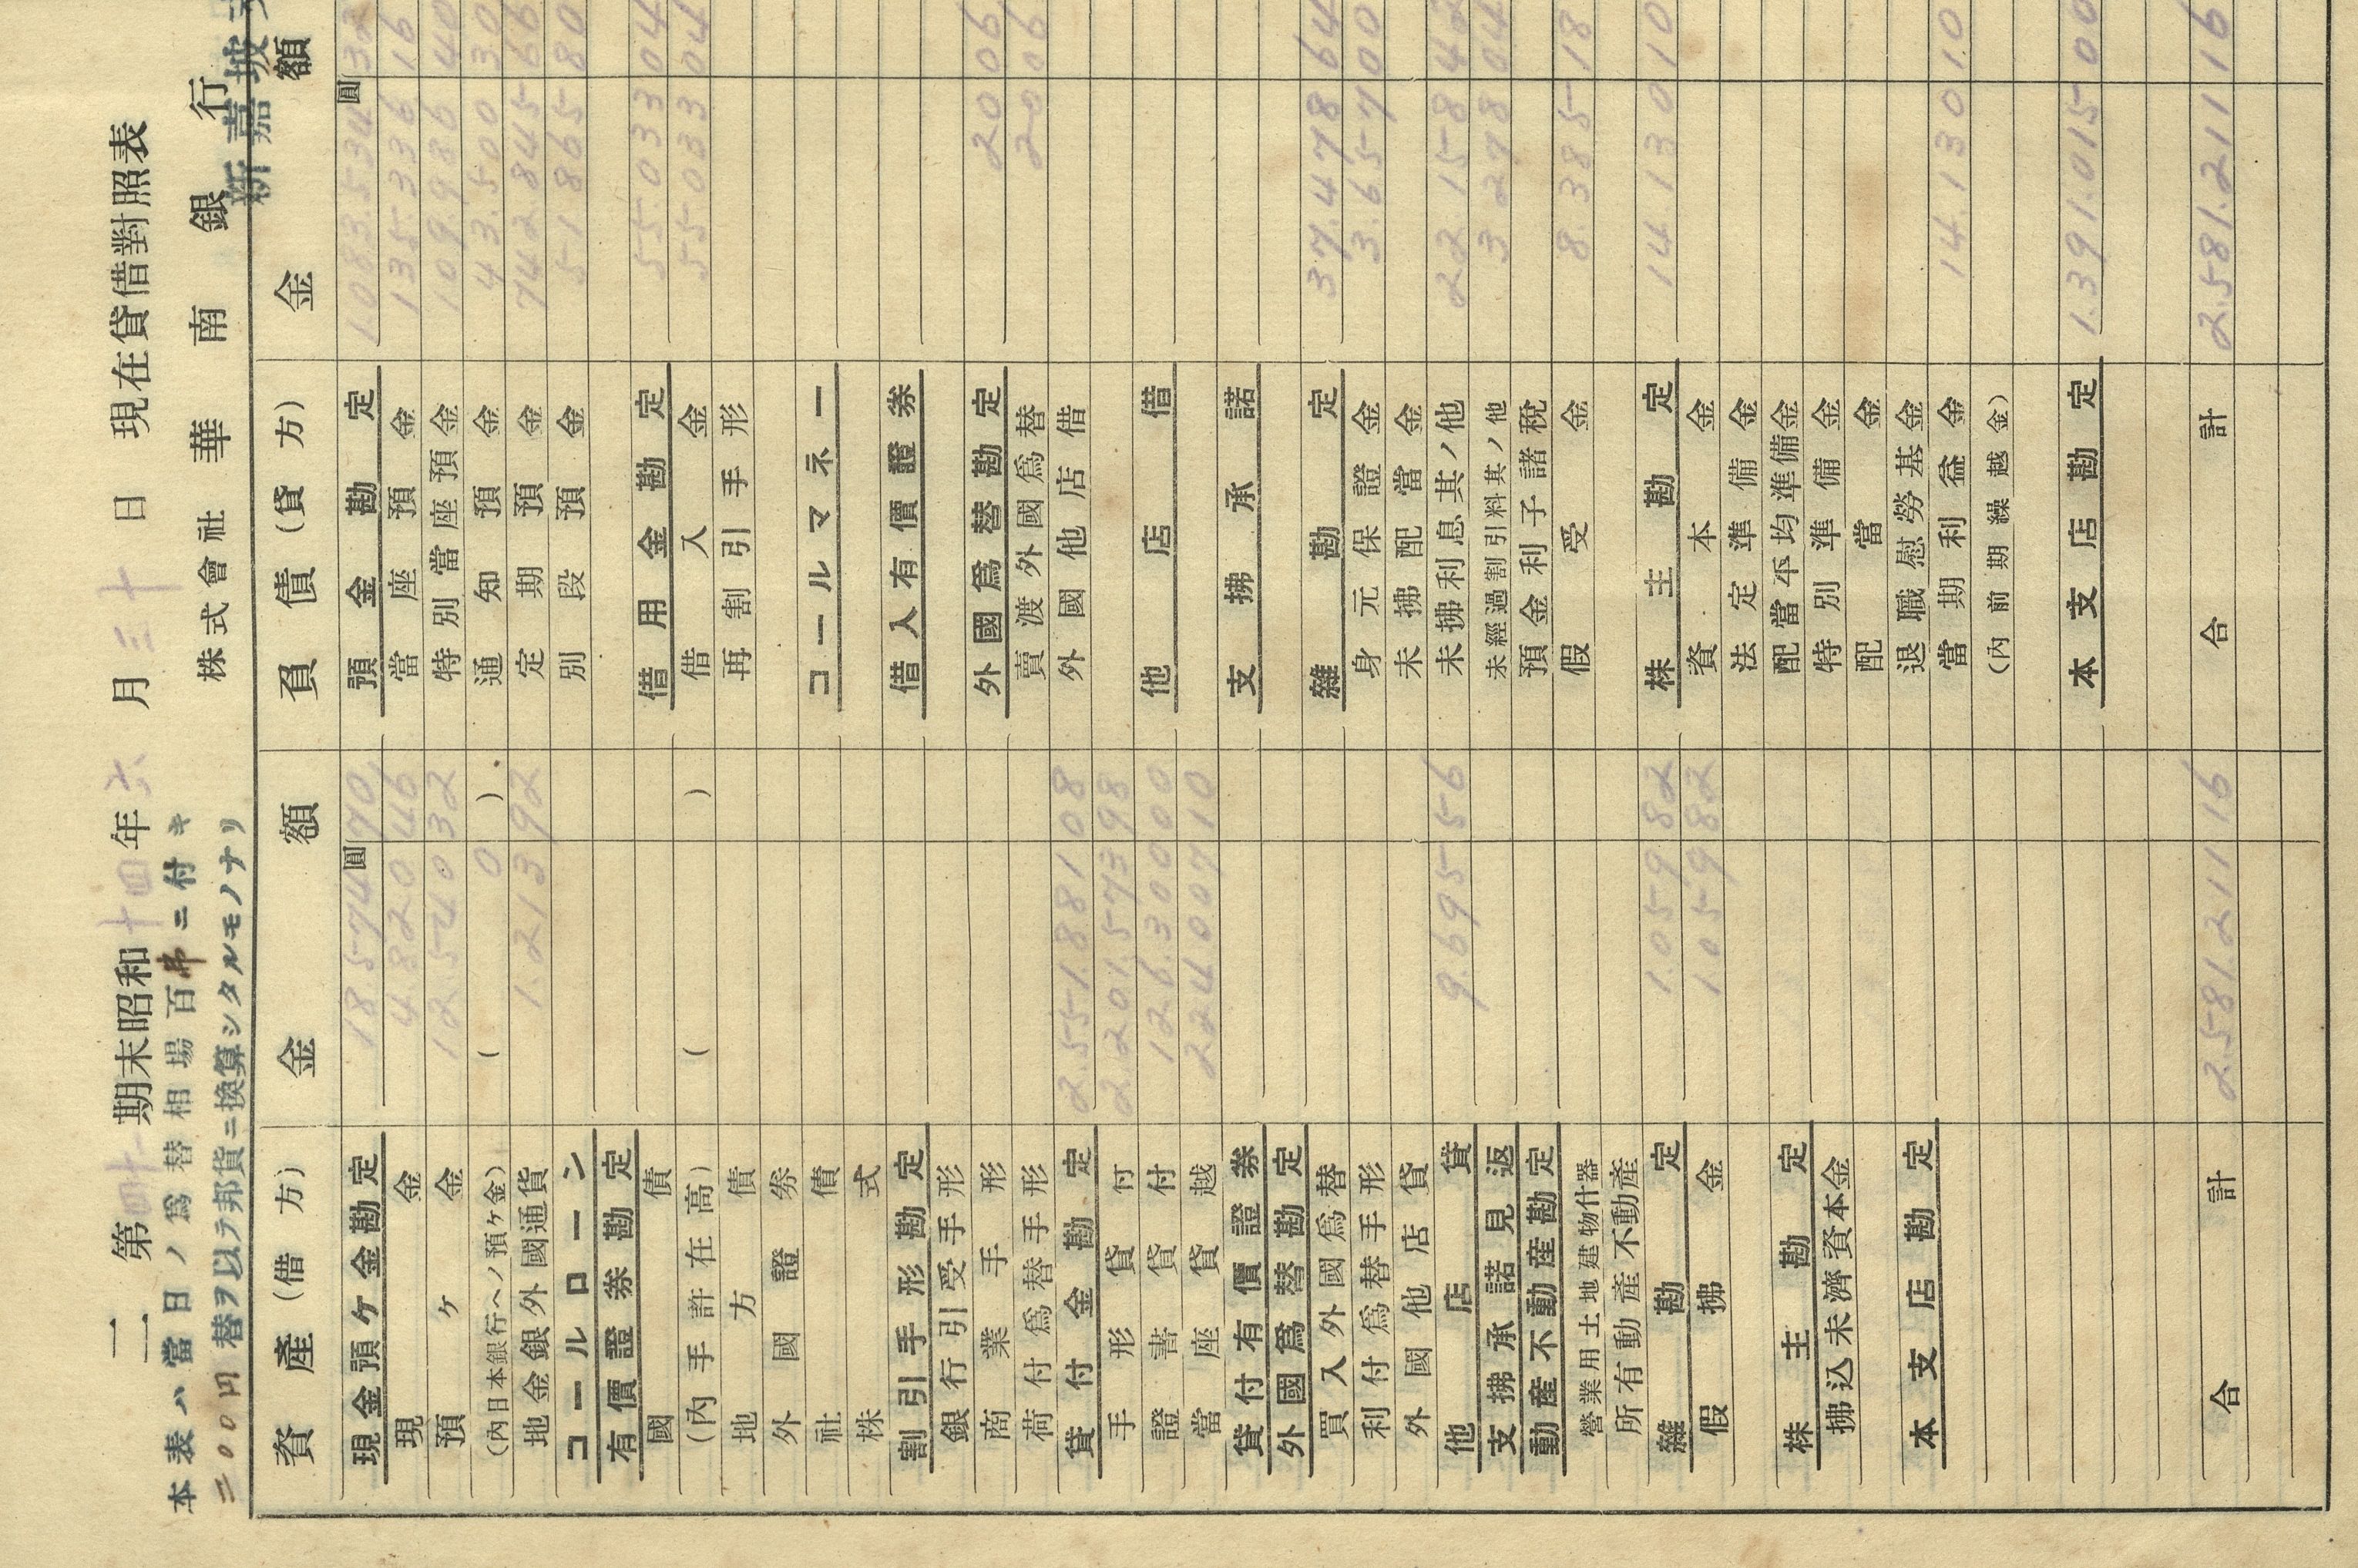 二 第四十一期末昭和十四年六月三十日現在貸借對照表
本表ハ當日ノ爲替相場百弗ニ付キ
二〇〇円替ヲ以テ邦貨ニ換算シタルモノナリ
株式會社 華南銀行
新嘉坡
資產(借方) 金額
圓
現金預ケ金勘定 18.574 70
現金 4.820 46
預ケ金 12.540 32
(內日本銀行ヘノ預ケ金) ( 0 )
地金銀外國通貨 1.213 92
コールローン
有價證券勘定
國債
(內手許在高) ( )
地方債
外國證券
社債
株式
割引手形勘定
銀行引受手形
商業手形
荷付爲替手形
貸付金勘定 2.551.881 08
手形貸付 2.201.573 98
證書貸付 126.300 00
當座貸越 224.007 10
貸付有價證券
外國爲替勘定
買入外國爲替
利付爲替手形
外國他店貸
他店貸 9.695 56
支拂承諾見返
動產不動產勘定
營業用土地建物什器
所有動產不動產
雜勘定 1.059 82
假拂金 1.059 82
株主勘定
拂込未濟資本金
本支店勘定
合計 2.581.211 16
負債(貸方) 金額
圓
預金勘定 1.083.534 32
當座預金 135.336 16
特別當座預金 109.986 40
通知預金 43.500 30
定期預金 742.845 66
別段預金 51.865 80
借用金勘定 55.033 04
借入金 55.033 04
再割引手形
コールマネー
借入有價證券
外國爲替勘定 20 06
賣渡外國爲替 20 06
外國他店借
他店借
支拂承諾
雜勘定 37.478 64
身元保證金 3.657 00
未拂配當金
未拂利息其ノ他 22.158 42
未經過割引料其ノ他 3.278 04
預金利子諸稅
假受金 8.385 18
株主勘定 14.130 10
資本金
法定準備金
配當平均準備金
特別準備金
配當金
退職慰勞基金
當期利益金 14.130 10
(內前期繰越金)
本支店勘定 1.391.015 00
合計 2.581.211 16